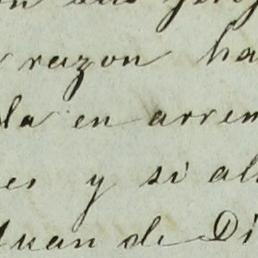 razon ha
la en arren
es y si al
Juan de Di